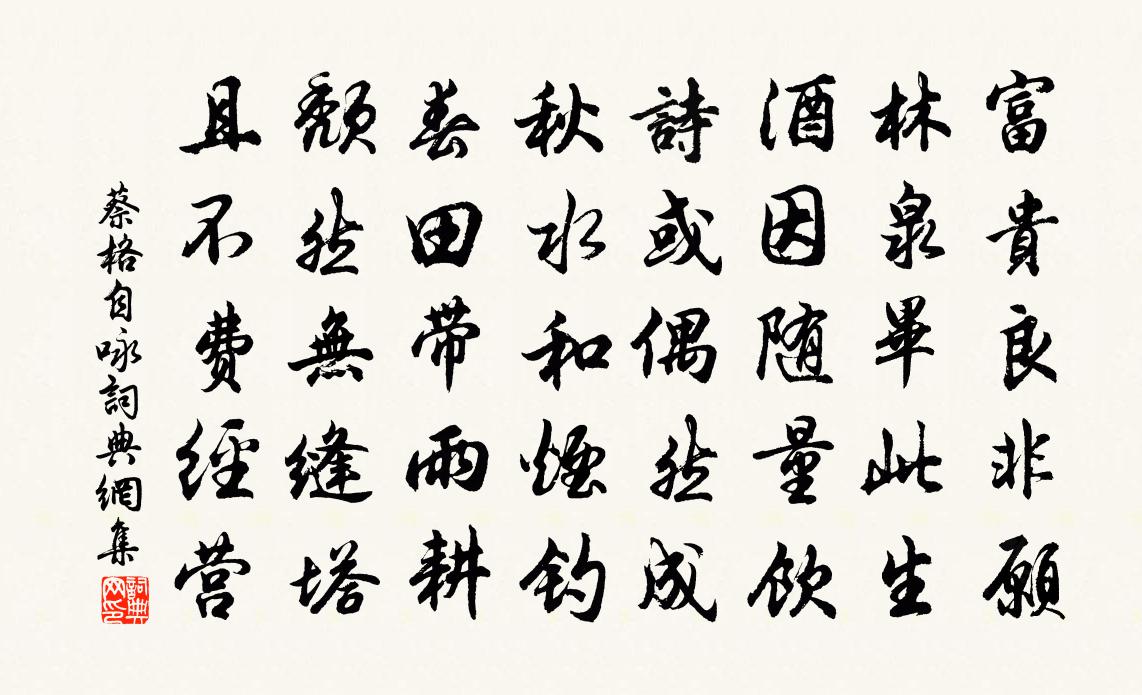 富貴良非願
林泉畢此生
酒因随量飲
詩或偶然成
秋水和煙釣
春田带雨耕
頹然無縫塔
且不費經营
蔡格自咏詞典網集
詞典网印